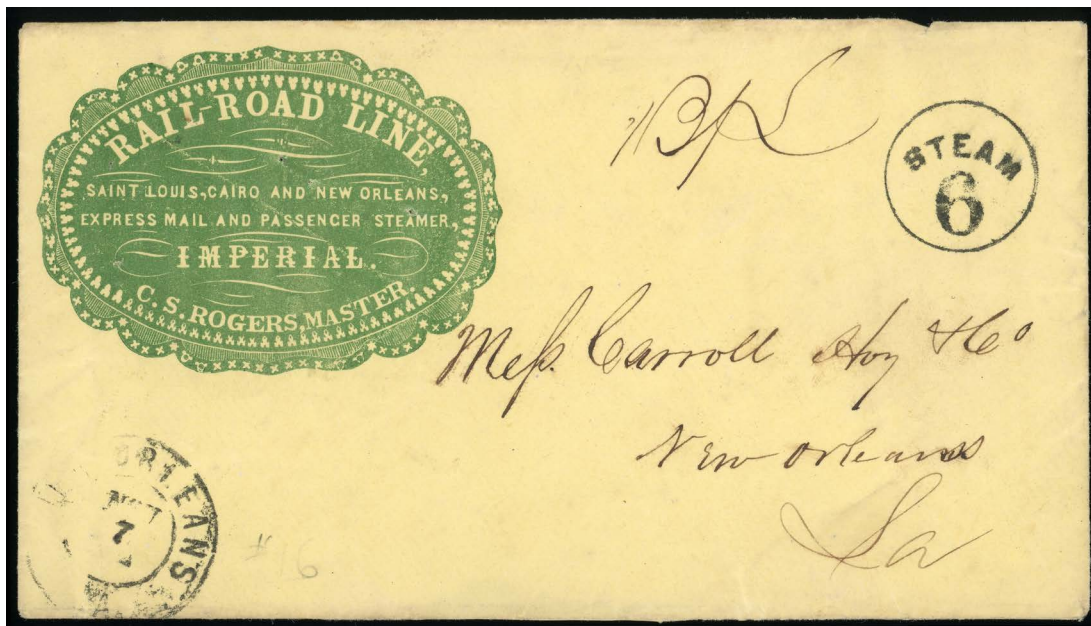 RAIL-ROAD LINE,
SAINT LOUIS, CAIRO AND NEW ORLEANS,
EXPRESS MAIL AND PASSENGER STEAMER,
IMPERIAL.
C. S. ROGERS, MASTER.
B/L
STEAM
6
Mess. Carroll Hoy & Co
New Orleans
La
ORLEANS
7
# 16